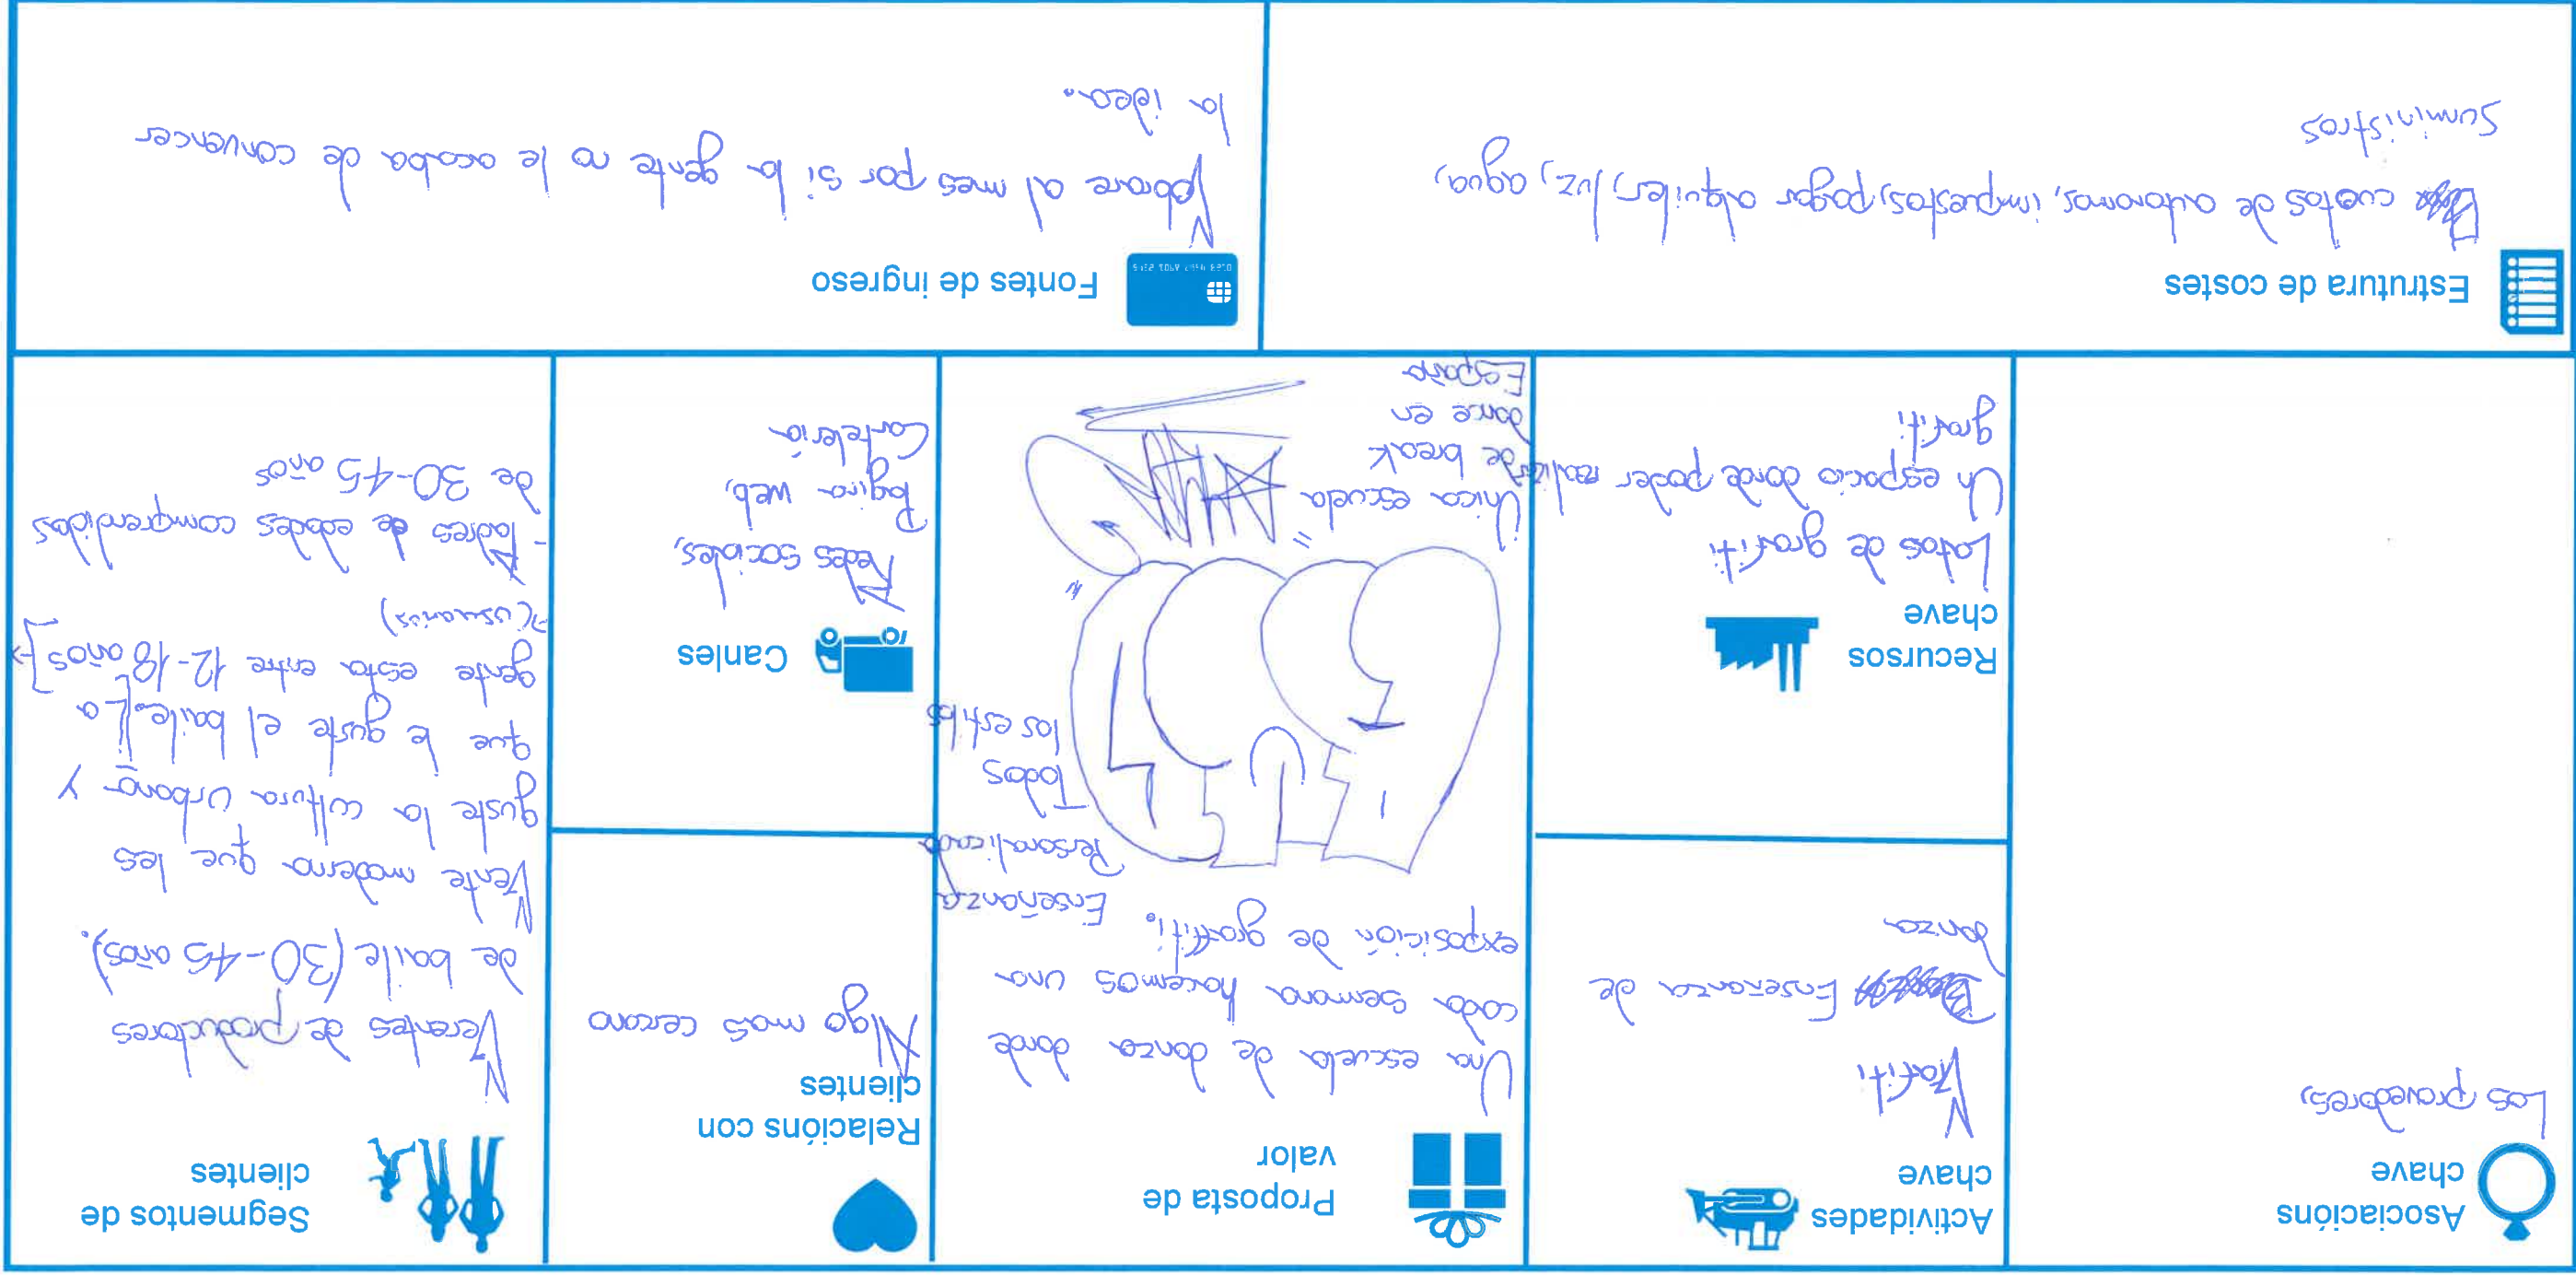 Asociacións
chave
Los provedores,
Actividades
chave
Grafiti
Enseñanza de
danza
Recursos
chave
Latas de grafiti
Un espacio donde poder realizar
grafiti
Proposta de
valor
Una escuela de danza donde
cada semana hacemos una
exposición de graffiti.
Enseñanza
Personalizada
Todos
los estilos
Unica escuela
de break
dance en
España
Relacións con
clientes
Algo mas cercano
Canles
Redes sociales,
Pagina web,
Carteleria
Segmentos de
clientes
Gerentes de productores
de baile (30-45 años).
Gente moderna que les
guste la cultura urbana y
que le guste el baile. [La
gente esta entre 12-18 años]->
(usuarios)
- Padres de edades comprendidas
de 30-45 años
Estrutura de costes
cuotas de autonomos, impuestos, pagar alquiler, luz, agua,
Suministros
Fontes de ingreso
0123 4567 8901 2345
al mes por si la gente no le acaba de convencer
la idea.